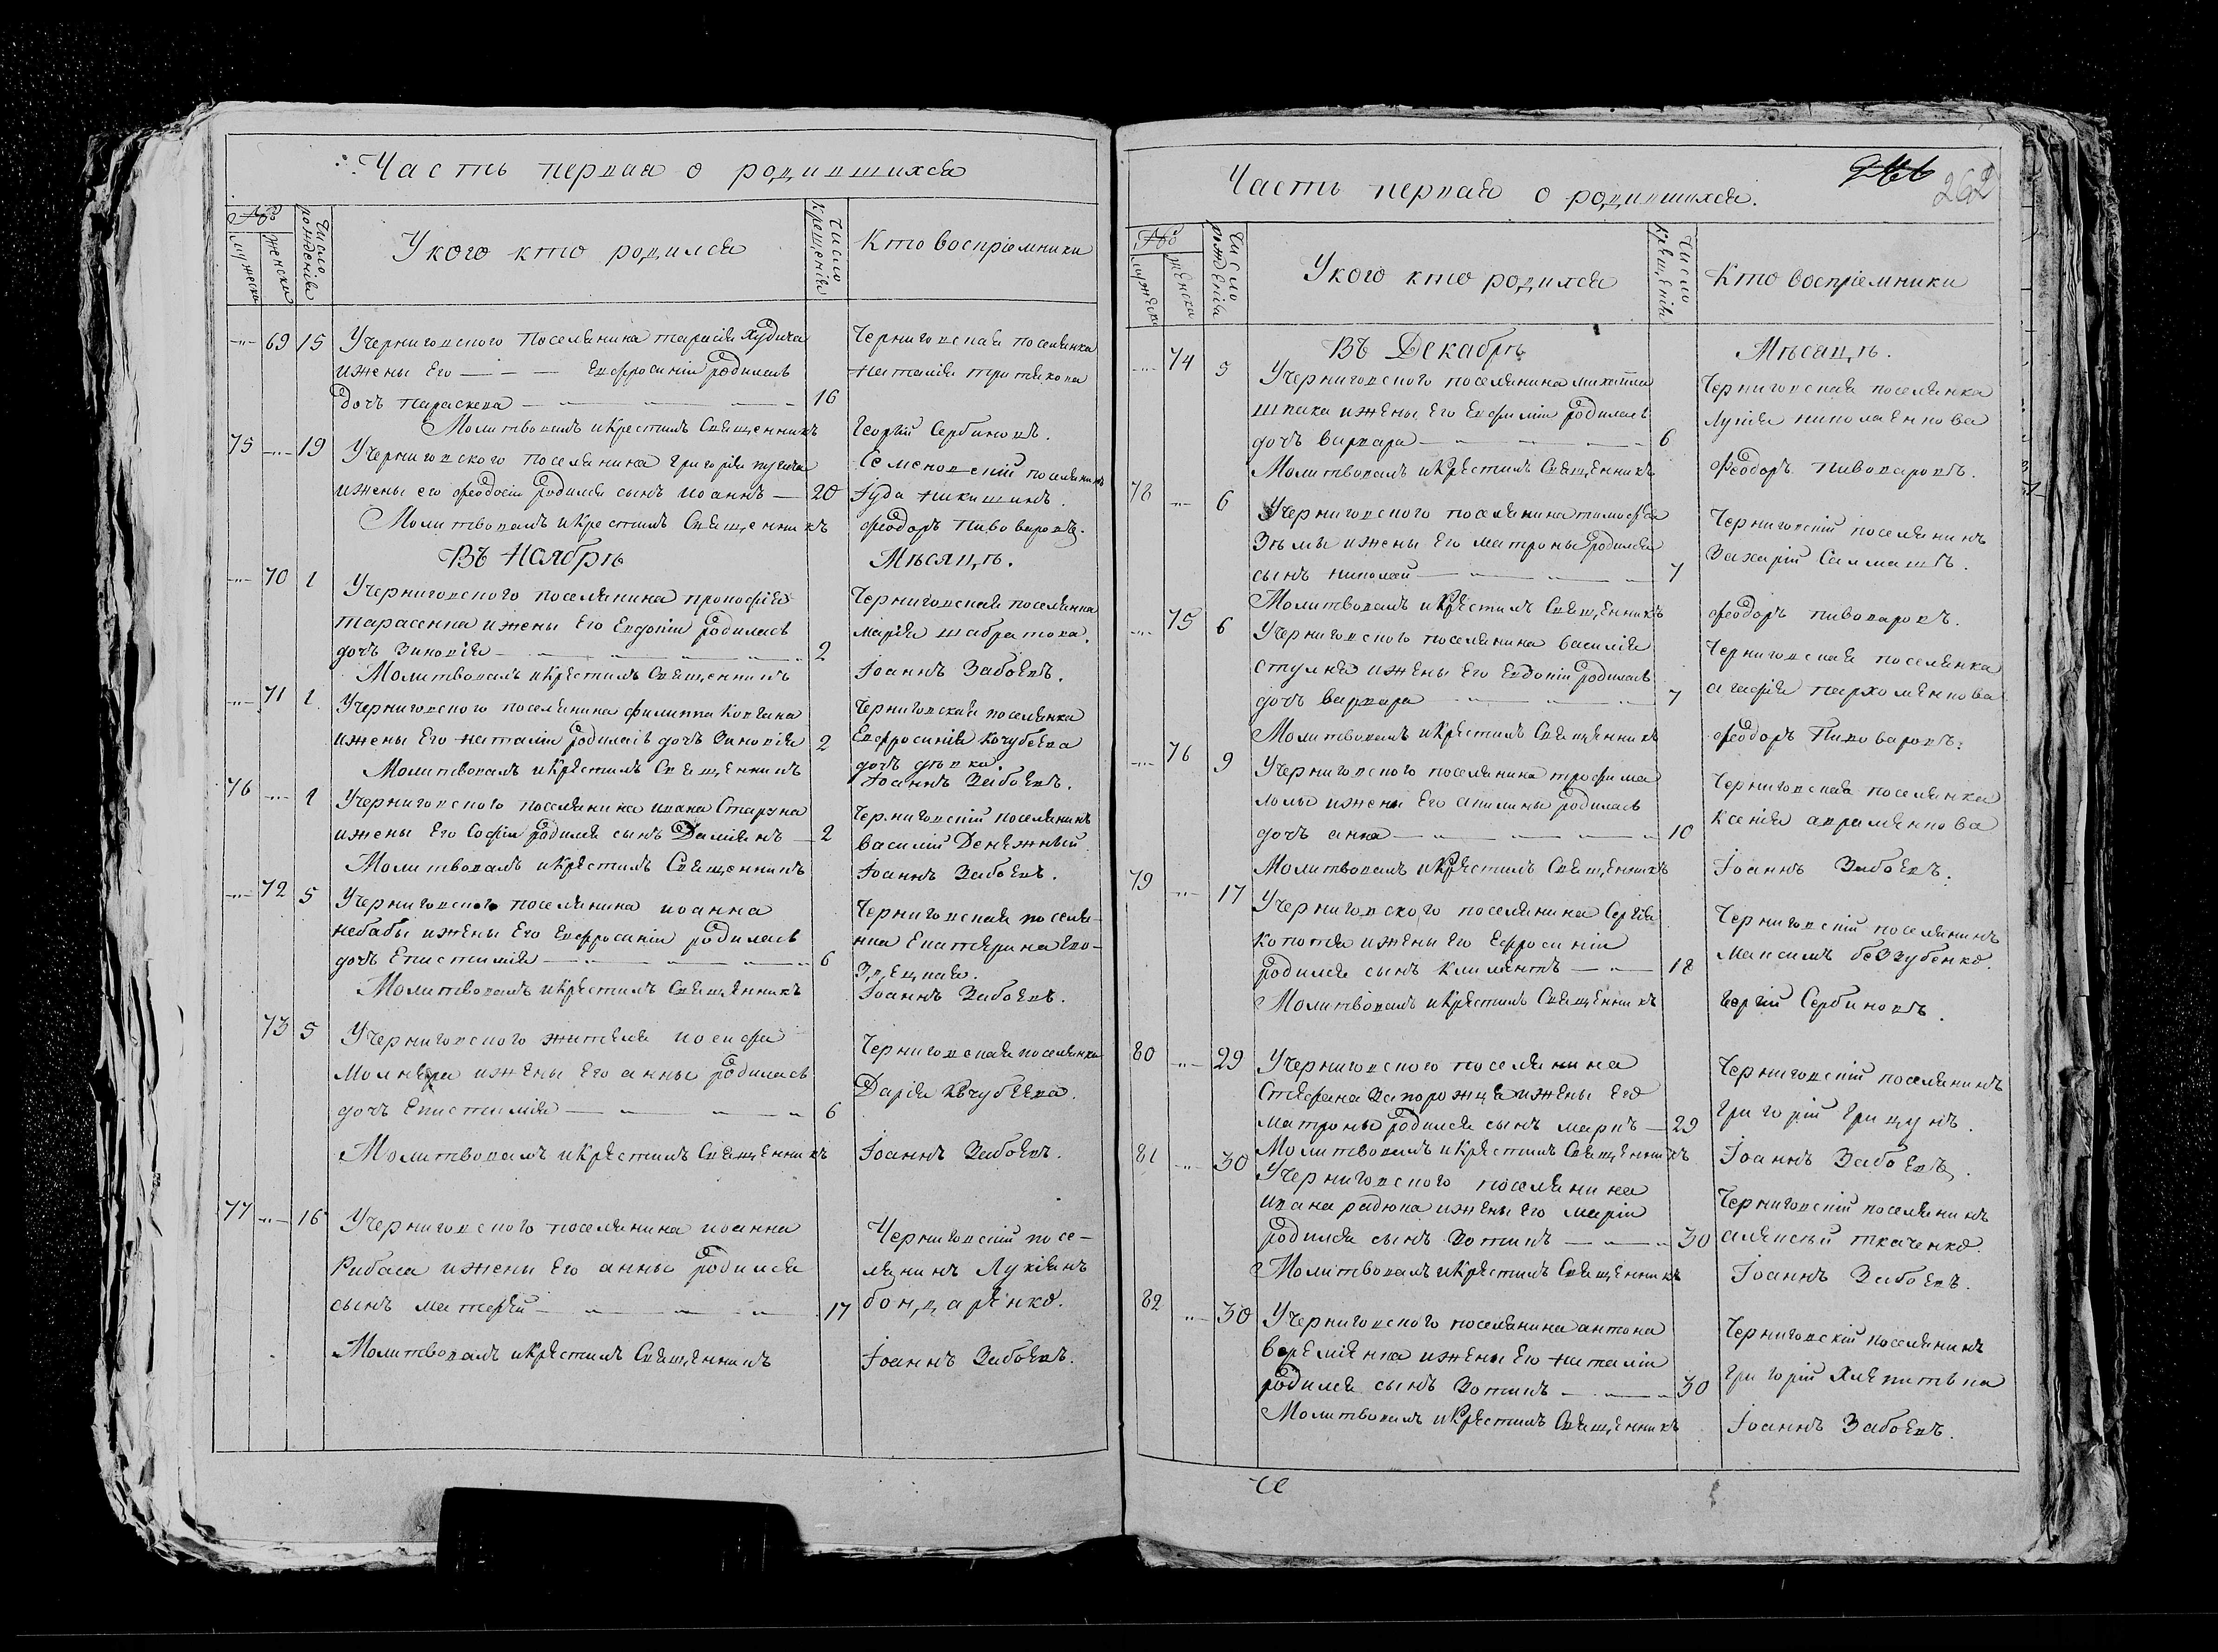 Часть первая о родившихся
№
мужеска
женска
Число рожденія
У кого кто родился
Число крещенія
Кто воспріемники
69 15 У черниговского поселянина тарасія
и жены его Евфросиніи родилась
дочь параскева 16
Черниговская поселянка
наталія
Молитвовалъ и крестилъ Священникъ Георгій Сербиновъ.
75 19 У черниговского поселянина григорія
и жены его феодосіи родился сынъ иоаннъ 20
Семеновскій поселянинъ
Іуда никишинъ
Молитвовалъ и крестилъ Священникъ феодоръ пивоваровъ.
Въ Ноябрѣ Мѣсяцѣ.
70 1 У черниговского поселянина прокофія
тарасенка и жены его Евдокіи родилась
дочь Зиновія 2
Черниговская поселянка
марія шабратова.
Молитвовалъ и крестилъ Священникъ Іоаннъ Забоевъ.
71 1 У черниговского поселянина филиппа
и жены его наталіи родилась дочь Зиновія 2
Черниговская поселянка
Евфросинія кочубеева
дочь дѣвка
Молитвовалъ и крестилъ Священникъ Іоаннъ Забоевъ.
76 1 У черниговского поселянина ивана
и жены его Софіи родился сынъ Даміянъ 2
Черниговскій поселянинъ
василій Денежный
Молитвовалъ и крестилъ Священникъ Іоаннъ Забоевъ.
72 5 У черниговского поселянина иоанна
небабы и жены его Евфросиніи родилась
дочь Епистимія 6
Черниговская поселя-
нка Екатерина
Молитвовалъ и крестилъ Священникъ Іоаннъ Забоевъ.
73 5 У черниговского жителя иосифа
и жены его анны родилась
дочь Епистимія 6
Черниговская поселянка
Дарія кочубеева.
Молитвовалъ и крестилъ Священникъ Іоаннъ Забоевъ.
77 16 У черниговского поселянина иоанна
Рибаса и жены его анны родился
сынъ матфей 17
Черниговскій посе-
лянинъ Лукіянъ
бондаренко.
Молитвовалъ и крестилъ Священникъ Іоаннъ Забоевъ.
262
Часть первая о родившихся.
№
мужеска
женска
Число рожденія
У кого кто родился
Число крещенія
Кто воспріемники
Въ Декабрѣ Мѣсяцѣ.
74 5 У черниговского поселянина михаила
шпака и жены его Евфиміи родилась
дочь варвара 6
Черниговская поселянка
Лукія николаенкова
Молитвовалъ и крестилъ Священникъ феодоръ пивоваровъ.
78 6 У черниговского поселянина тимофея
Зѣмы и жены его матроны родился
сынъ николай 7
Черниговскій поселянинъ
Захарій Салмашъ.
Молитвовалъ и крестилъ Священникъ феодоръ пивоваровъ.
75 6 У черниговского поселянина василія
и жены его Евдокіи родилась
дочь варвара 7
Черниговская поселянка
агафія пархоменкова
Молитвовалъ и крестилъ Священникъ феодоръ Пивоваровъ.
76 9 У черниговского поселянина трофима
и жены его акилины родилась
дочь анна 10
Черниговская поселянка
Ксенія авраменкова
Молитвовалъ и крестилъ Священникъ Іоаннъ Забоевъ.
79 17 У черниговского поселянина Сергія
копотя и жены его Ефросиніи
родился сынъ климентъ 18
Черниговскій поселянинъ
максимъ беззубенко.
Молитвовалъ и крестилъ Священникъ Георгій Сербиновъ.
80 29 У черниговского поселянина
Стефана Запорожця и жены его
матроны родился сынъ маркъ 29
Черниговскій поселянинъ
григорій грицунъ.
Молитвовалъ и крестилъ Священникъ Іоаннъ Забоевъ.
81 30 У черниговского поселянина
ивана радюка и жены его маріи
родился сынъ Зотикъ 30
Черниговскій поселянинъ
алексѣй ткаченко.
Молитвовалъ и крестилъ Священникъ Іоаннъ Забоевъ.
82 30 У черниговского поселянина антона
веремѣнка и жены его наталіи
родился сынъ Зотикъ 30
Черниговскій поселянинъ
григорій
Молитвовалъ и крестилъ Священникъ Іоаннъ Забоевъ.